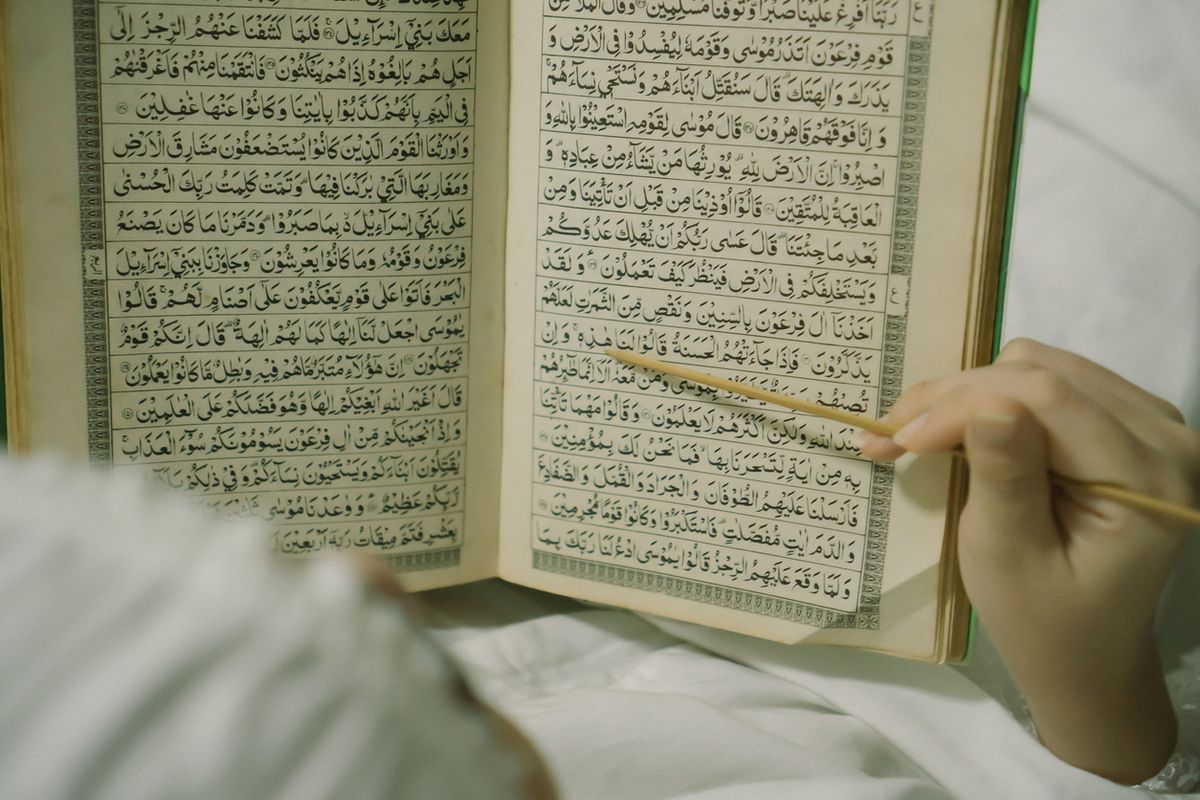 رَبَّنَا اَفْرِغْ عَلَيْنَا صَبْرًا وَّتَوَفَّنَا مُسْلِمِيْنَ وَقَالَ الْمَلَاُ مِنْ
قَوْمِ فِرْعَوْنَ اَتَذَرُ مُوْسٰى وَقَوْمَهٗ لِيُفْسِدُوْا فِى الْاَرْضِ وَ
يَذَرَكَ وَاٰلِهَتَكَ ۗ قَالَ سَنُقَتِّلُ اَبْنَآءَهُمْ وَنَسْتَحْيٖ نِسَآءَهُمْ ۚ
وَاِنَّا فَوْقَهُمْ قَاهِرُوْنَ قَالَ مُوْسٰى لِقَوْمِهِ اسْتَعِيْنُوْا بِاللّٰهِ وَ
اصْبِرُوْا ۚ اِنَّ الْاَرْضَ لِلّٰهِ ۙ يُوْرِثُهَا مَنْ يَّشَآءُ مِنْ عِبَادِهٖ ۗ وَ
الْعَاقِبَةُ لِلْمُتَّقِيْنَ قَالُوْٓا اُوْذِيْنَا مِنْ قَبْلِ اَنْ تَأْتِيَنَا وَمِنْ
بَعْدِ مَا جِئْتَنَا ۗ قَالَ عَسٰى رَبُّكُمْ اَنْ يُّهْلِكَ عَدُوَّكُمْ
وَيَسْتَخْلِفَكُمْ فِى الْاَرْضِ فَيَنْظُرَ كَيْفَ تَعْمَلُوْنَ وَلَقَدْ
اَخَذْنَآ اٰلَ فِرْعَوْنَ بِالسِّنِيْنَ وَنَقْصٍ مِّنَ الثَّمَرٰتِ لَعَلَّهُمْ
يَذَّكَّرُوْنَ فَاِذَا جَآءَتْهُمُ الْحَسَنَةُ قَالُوْا لَنَا هٰذِهٖ ۚ وَاِنْ
تُصِبْهُمْ بِمُوْسٰى وَمَنْ مَّعَهٗ ۗ اَلَآ اِنَّمَا طٰٓئِرُهُمْ
عِنْدَ اللّٰهِ وَلٰكِنَّ اَكْثَرَهُمْ لَا يَعْلَمُوْنَ وَقَالُوْا مَهْمَا تَأْتِنَا
بِهٖ مِنْ اٰيَةٍ لِّتَسْحَرَنَا بِهَا ۙ فَمَا نَحْنُ لَكَ بِمُؤْمِنِيْنَ
فَاَرْسَلْنَا عَلَيْهِمُ الطُّوْفَانَ وَالْجَرَادَ وَالْقُمَّلَ وَالضَّفَادِعَ
وَالدَّمَ اٰيٰتٍ مُّفَصَّلٰتٍ ۗ فَاسْتَكْبَرُوْا وَكَانُوْا قَوْمًا مُّجْرِمِيْنَ
وَلَمَّا وَقَعَ عَلَيْهِمُ الرِّجْزُ قَالُوْا يٰمُوْسَى ادْعُ لَنَا رَبَّكَ بِمَا
مَعَكَ بَنِيْٓ اِسْرَآءِيْلَ ۚ فَلَمَّا كَشَفْنَا عَنْهُمُ الرِّجْزَ اِلٰٓى
اَجَلٍ هُمْ بَالِغُوْهُ اِذَا هُمْ يَنْكُثُوْنَ فَانْتَقَمْنَا مِنْهُمْ فَاَغْرَقْنٰهُمْ
فِى الْيَمِّ بِاَنَّهُمْ كَذَّبُوْا بِاٰيٰتِنَا وَكَانُوْا عَنْهَا غٰفِلِيْنَ
وَاَوْرَثْنَا الْقَوْمَ الَّذِيْنَ كَانُوْا يُسْتَضْعَفُوْنَ مَشَارِقَ الْاَرْضِ
وَمَغَارِبَهَا الَّتِيْ بٰرَكْنَا فِيْهَا ۗ وَتَمَّتْ كَلِمَتُ رَبِّكَ الْحُسْنٰى
عَلٰى بَنِيْٓ اِسْرَآءِيْلَ ۙ بِمَا صَبَرُوْا ۗ وَدَمَّرْنَا مَا كَانَ يَصْنَعُ
فِرْعَوْنُ وَقَوْمُهٗ وَمَا كَانُوْا يَعْرِشُوْنَ وَجَاوَزْنَا بِبَنِيْٓ اِسْرَآءِيْلَ
الْبَحْرَ فَاَتَوْا عَلٰى قَوْمٍ يَّعْكُفُوْنَ عَلٰٓى اَصْنَامٍ لَّهُمْ ۚ قَالُوْا
يٰمُوْسَى اجْعَلْ لَّنَآ اِلٰهًا كَمَا لَهُمْ اٰلِهَةٌ ۗ قَالَ اِنَّكُمْ قَوْمٌ
تَجْهَلُوْنَ اِنَّ هٰٓؤُلَآءِ مُتَبَّرٌ مَّا هُمْ فِيْهِ وَبٰطِلٌ مَّا كَانُوْا يَعْمَلُوْنَ
قَالَ اَغَيْرَ اللّٰهِ اَبْغِيْكُمْ اِلٰهًا وَّهُوَ فَضَّلَكُمْ عَلَى الْعٰلَمِيْنَ
وَاِذْ اَنْجَيْنٰكُمْ مِّنْ اٰلِ فِرْعَوْنَ يَسُوْمُوْنَكُمْ سُوْٓءَ الْعَذَابِ ۚ
يُقَتِّلُوْنَ اَبْنَآءَكُمْ وَيَسْتَحْيُوْنَ نِسَآءَكُمْ ۗ وَفِيْ ذٰلِكُمْ
رَّبِّكُمْ عَظِيْمٌ وَوٰعَدْنَا مُوْسٰى
بِعَشْرٍ فَتَمَّ مِيْقَاتُ رَبِّهٖٓ اَرْبَعِيْنَ